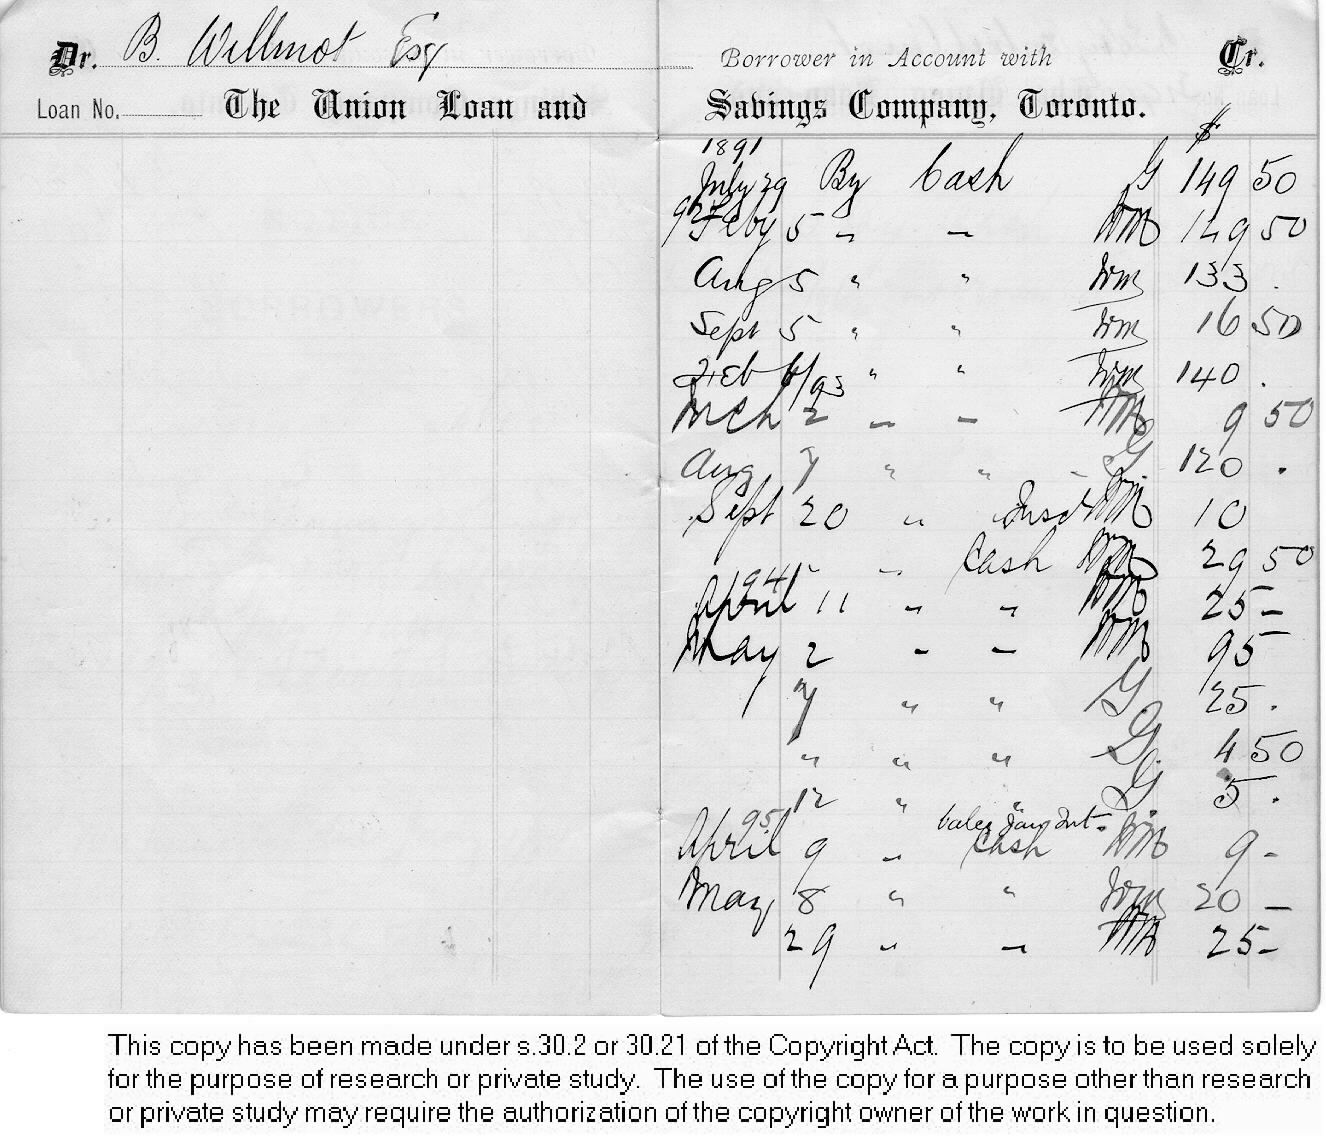 Dr. B. Willmot Esq Borrower in Account with Cr.
Loan No. The Union Loan and Savings Company, Toronto.
1891 $
July 29 By Cash G 149 50
92 Feby 5 " " WM 149 50
Aug 5 " " WM 133 .
Sept 5 " " WM 16 50
Feb 4/93 " " WM 140 .
Mch 2 " " WM 9 50
Aug 7 " " G. 120 .
Sept 20 " WM 10
" Cash WM 29 50
94
April 11 " " WM 25 –
May 2 " " WM 95
7 " " G 25 .
" " " G. 4 50
12 " " G. 5 .
95 Int.
April 9 " Cash WM 9 –
May 8 " " WM 20 –
29 " " WM 25 –
This copy has been made under s.30.2 or 30.21 of the Copyright Act. The copy is to be used solely
for the purpose of research or private study. The use of the copy for a purpose other than research
or private study may require the authorization of the copyright owner of the work in question.